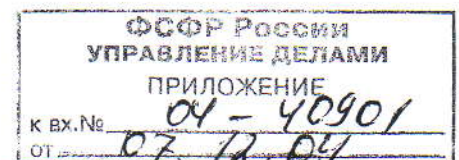 ФСФР России
УПРАВЛЕНИЕ ДЕЛАМИ
ПРИЛОЖЕНИЕ
к вх.№ 04-40901
от 07.12.04